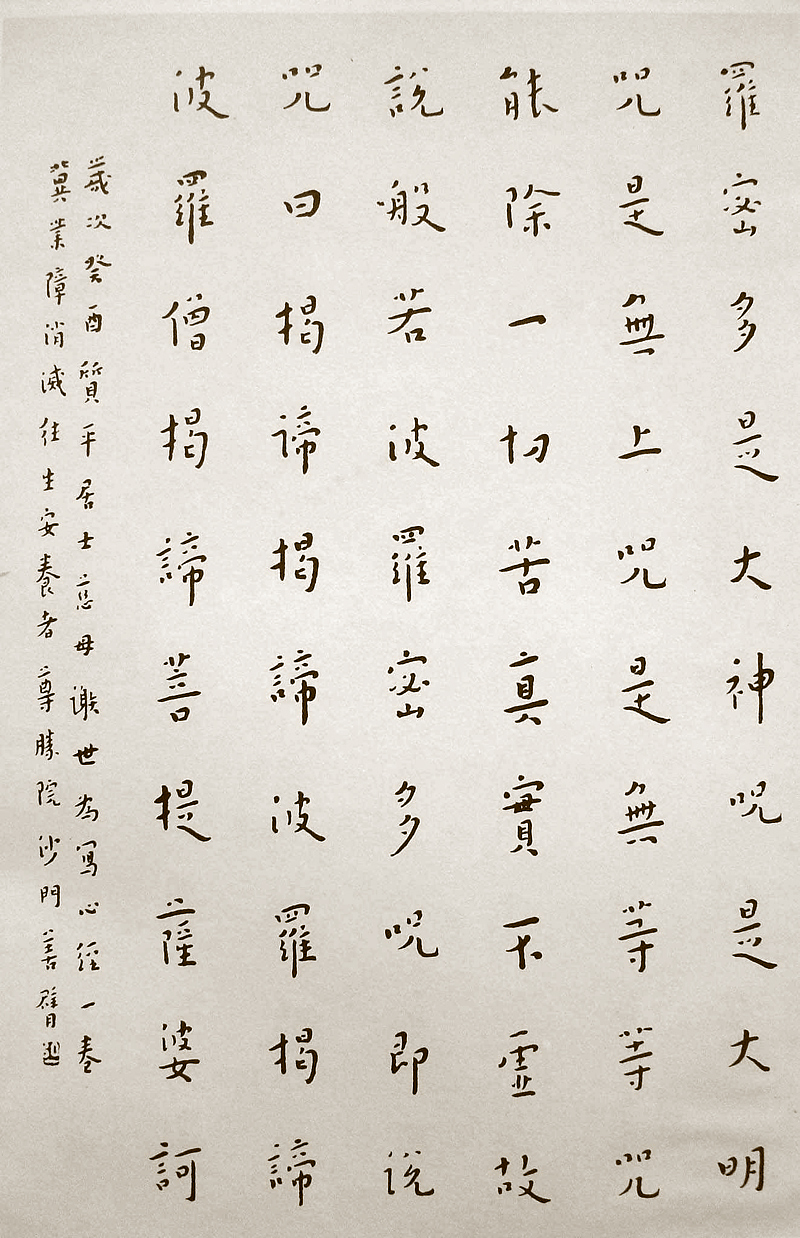 羅密多是大神呪是大明
呪是無上呪是無等等呪
能除一切苦真實不虛故
說般若波羅密多呪即説
呪曰揭諦揭諦波羅揭諦
波羅僧揭諦菩提薩婆訶
歲次癸酉質平居士慈母謝世為寫心經一卷
冀業障消滅往生安養者尊勝院沙門善臂